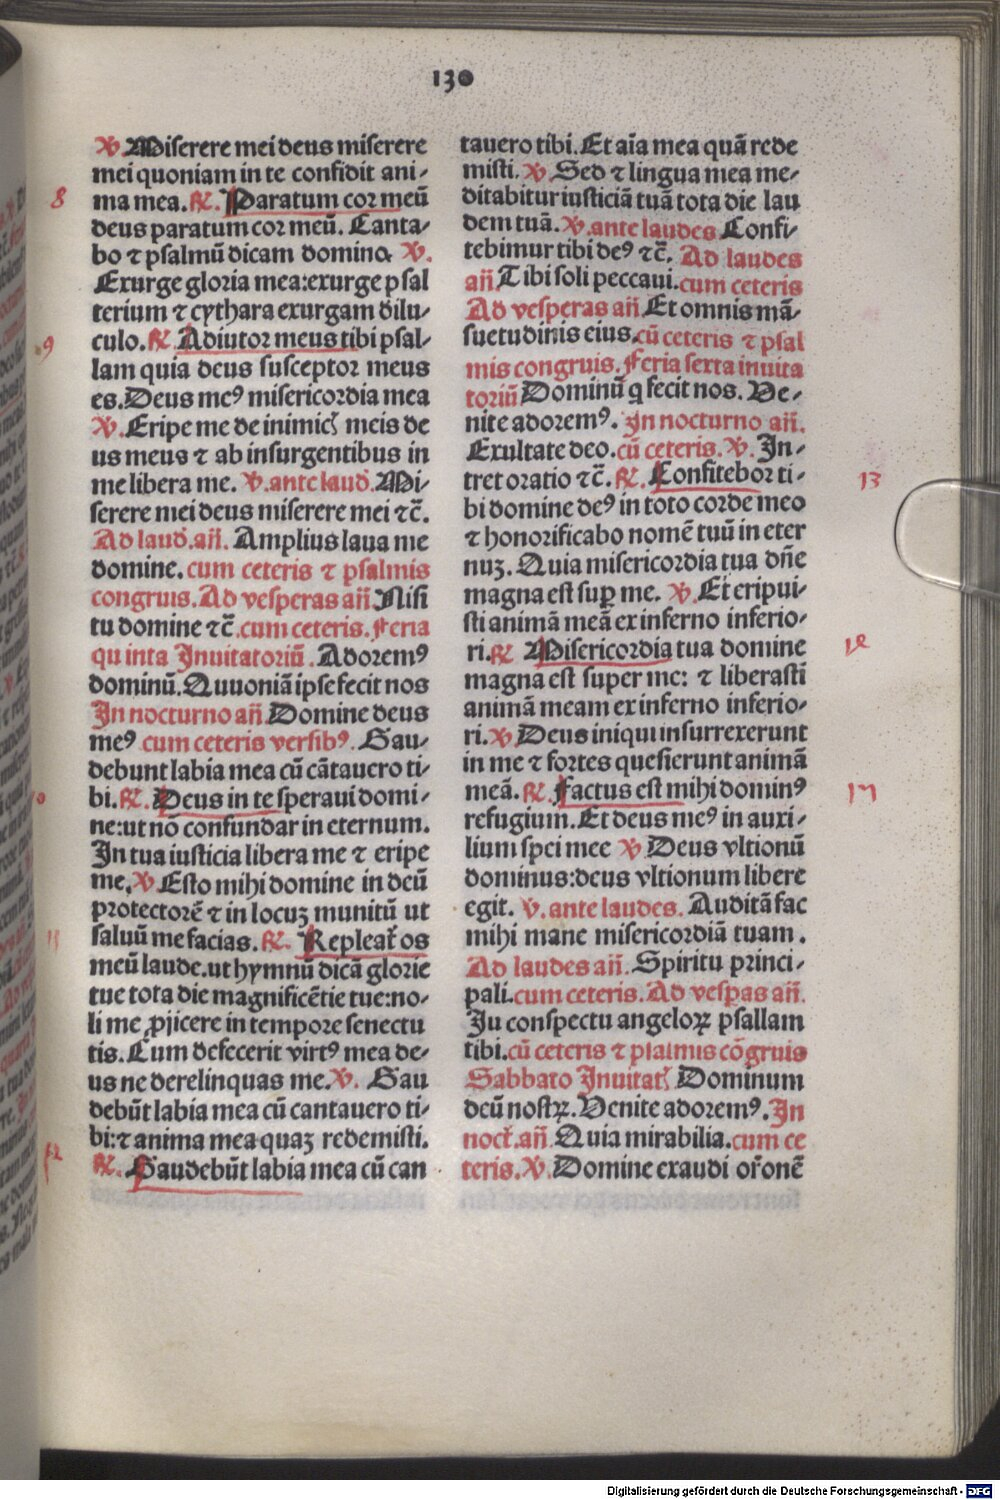 130
℣. Miserere mei deus miserere
mei quoniam in te confidit ani⸗
8
ma mea. ℟. Paratum cor meū
deus paratum cor meū. Canta⸗
bo ⁊ psalmū dicam domino. ℣.
Exurge gloria mea: exurge psal
terium ⁊ cythara exurgam dilu⸗
9
culo. ℟. Adiutor meus tibi psal⸗
lam quia deus susceptor meus
es. Deus meꝰ misericordia mea
℣. Eripe me de inimicꝭ meis de
us meus ⁊ ab insurgentibus in
me libera me. ℣. ante laud. Mi⸗
serere mei deus miserere mei ⁊c̄.
Ad laud. añ. Amplius laua me
domine. cum ceteris ⁊ psalmis
congruis. Ad vesperas añ Nisi
tu domine ⁊c̄. cum ceteris. Feria
quinta Inuitatoriū. Adoremꝰ
dominū. Quuoniā ipse fecit nos
In nocturno añ Domine deus
meꝰ cum ceteris versibꝰ. Gau⸗
debunt labia mea cū cātauero ti⸗
bi. ℟. Deus in te speraui domi⸗
ne: ut nō confundar in eternum.
In tua iusticia libera me ⁊ eripe
me, ℣ Esto mihi domine in deū
protectorē ⁊ in locuꝫ munitū ut
11
saluū me facias. ℟. Repleat̄ os
meū laude. ut hymnū dicā glorie
tue tota die magnificētie tue: no⸗
li me ꝓjicere in tempore senectu
tis. Cum defecerit virtꝰ mea de⸗
us ne derelinquas me. ℣. Gau
debūt labia mea cū cantauero ti⸗
bi: ⁊ anima mea quaꝫ redemisti.
12
℟. Gaudebūt labia mea cū can
tauero tibi. Et aīa mea quā rede
misti. ℣. Sed ⁊ lingua mea me⸗
ditabitur iusticiā tuā tota die lau
dem tuā. ℣. ante laudes Confi⸗
tebimur tibi deꝰ ⁊c̄. Ad laudes
añ. Tibi soli peccaui. cum ceteris
Ad vesperas añ Et omnis mā⸗
suetudinis eius. cū ceteris ⁊ psal
mis congruis. Feria sexta inuita
toriū Dominū q fecit nos. Ve⸗
nite adoremꝰ. In nocturno añ.
Exultate deo. cū ceteris. ℣. In⸗
tret oratio ⁊c̄. ℟. Confitebor ti⸗
13
bi domine deꝰ in toto corde meo
⁊ honorificabo nomē tuū in eter
nuꝫ. Quia misericordia tua dn̄e
magna est suꝑ me. ℣. Et eripui⸗
sti animā meā ex inferno inferio⸗
ri. ℟ Misericordia tua domine
magna est super me: ⁊ liberasti
animā meam ex inferno inferio⸗
ri. ℣ Deus iniqui insurrexerunt
in me ⁊ fortes quesierunt animā
meā. ℟. Factus est mihi dominꝰ
refugium. Et deus meꝰ in auxi⸗
lium spei mee ℣ Deus vltionū
dominus: deus vltionum libere
egit. ℣. ante laudes. Auditā fac
mihi mane misericordiā tuam.
Ad laudes añ. Spiritu princi⸗
pali. cum ceteris. Ad vesꝑas añ.
In conspectu angeloꝝ psallam
tibi. cū ceteris ⁊ psalmis cōgruis
Sabbato Inuitatꝭ Dominum
deū nostꝝ. Venite adoremꝰ. In
noct̄. añ. Quia mirabilia. cum ce
teris. ℣. Domine exaudi or̄onē
Digitalisierung gefördert durch die Deutsche Forschungsgemeinschaft - DFG